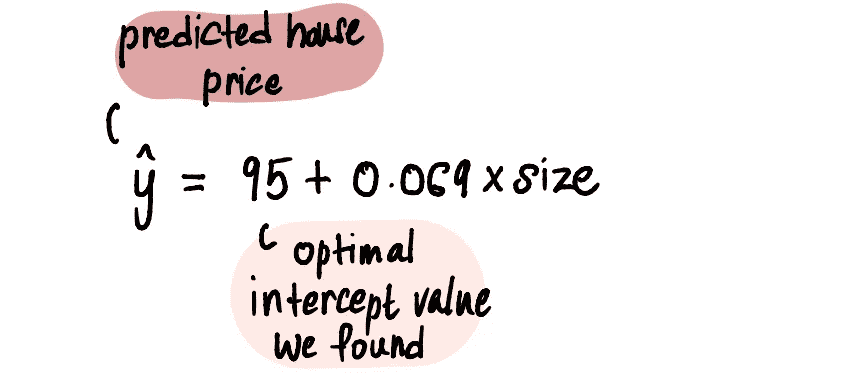 predicted house
price
ŷ = 95 + 0.069 x size
optimal
intercept value
we found